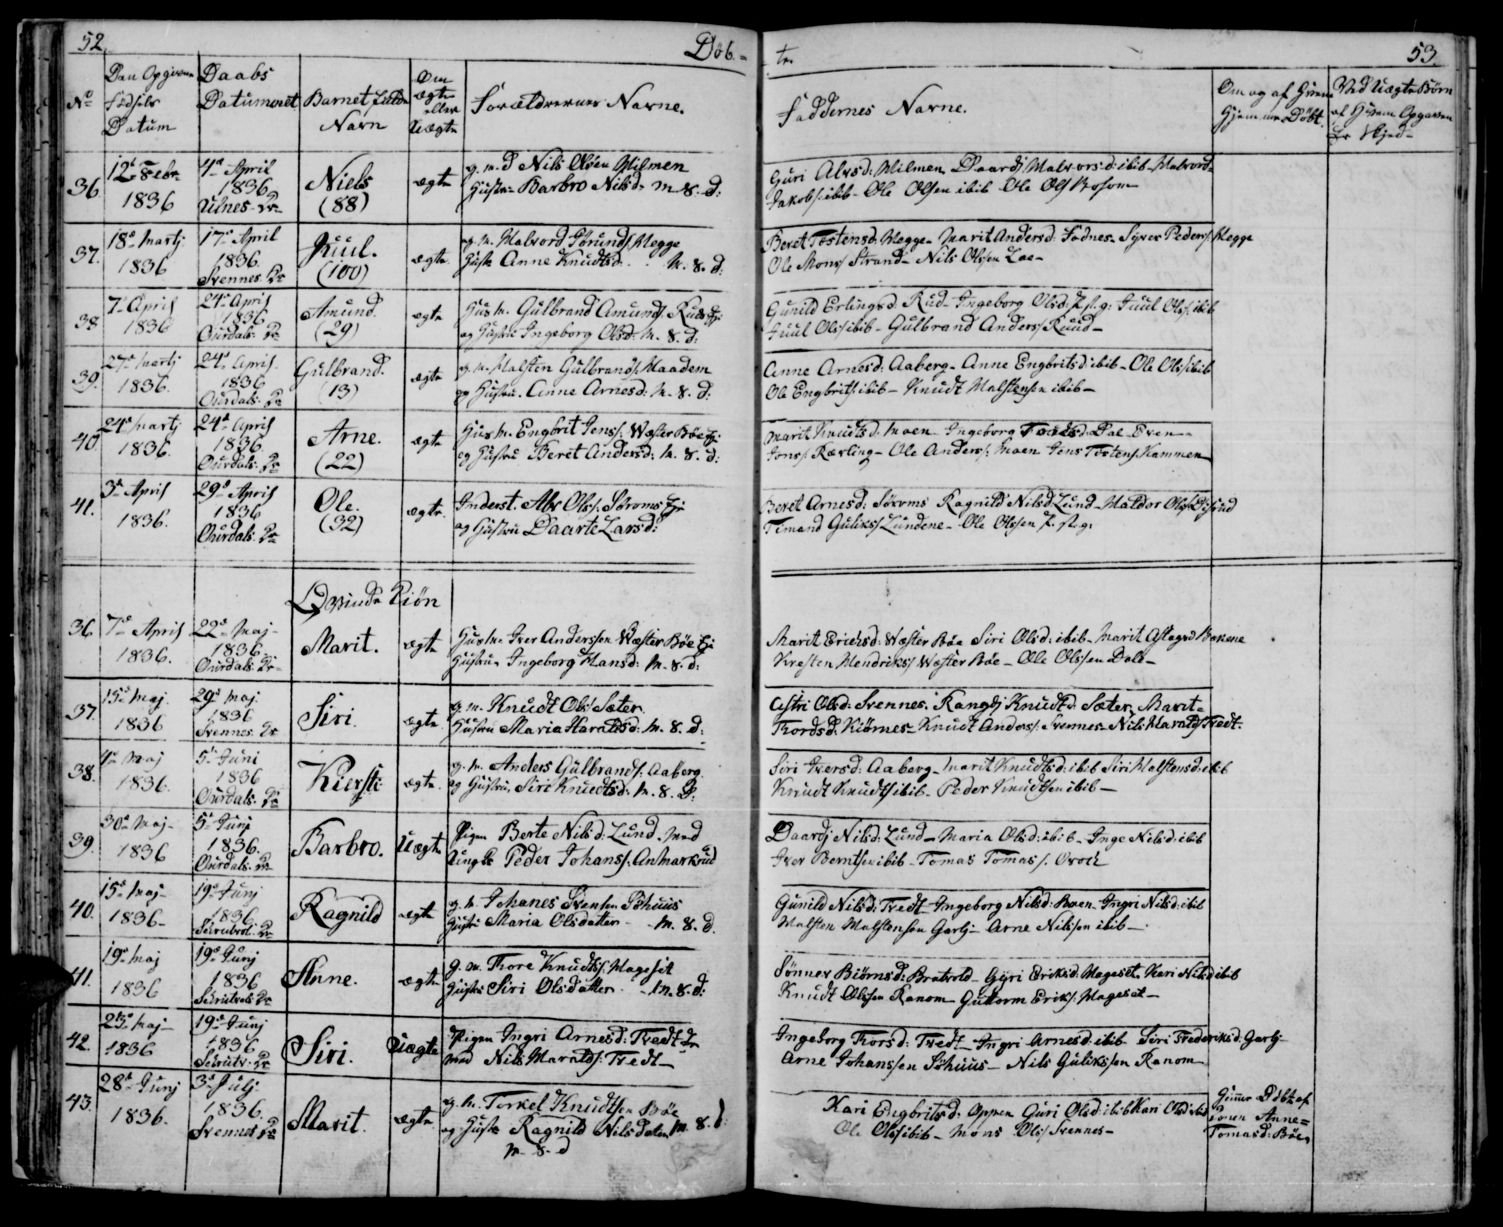 52.
Døb-
No
Den Opgivne
Fødsels
Datum
Daabs
Datumet
Barnet fulde
Navn
Om
ægte
eller
Uægte
Forældrernes Navne.
36.
12t Febr.
1836
4de April
1836
Ulnes
Niels
(88)
ægte
g. m. Nils Milmen
Hustru Barbro Nilsd: M. 8. d:
37.
18de Martj
1836
17de April
1836.
Svennes
Juul.
(100)
ægte
g. M. Halvord Jørunds. Hegge
Hustr Anne Knudtsd. M. 8. d:
38
7de April
1836
24de April
1836
Ourdals
Amund.
(29)
ægte
Husm. Gulbrand Amunds. Ruds Ej:
og Hustr Ingeborg Olsd: M. 8. d:
39.
27de Martj
1836.
24de April.
1836
Ourdals:
Gulbrand.
(13)
ægte
g. M. Halsten Gulbrands. Maadem
og Hustru. Anne Arnesd: M. 8. d:
40.
24de Martj
1836.
24de April
1836.
Ourdals:
Arne.
(22)
ægte
Husm. Engbrit Jens. Wæster Bøe Ej:
og Hustru Beret Andersd: M. 8. d:
41.
3de April
1836.
29de April
1836
Ourdals:
Ole.
(32)
ægte.
Inderst. Abr Ols. Søroms Ej:
og Hustru Daarte Larsd:
Qvinde Kiøn
36.
7de April
1836.
22de Maj
1836.
Ourdals:
Marit.
ægte
Husm. Iver Anderssen Wæster Bøe Ej:
Hustru Ingeborg Hansd: M. 8. d:
37.
15de Maj
1836
29de Maj
1836
Svennes
Siri.
ægte
g. m. Knudt Ols Sæter
Hustru Maria Haraldsd: M. 8. d:
38.
4de Maj
1836.
5te Juni
1836
Ourdals:
Kiersti
ægte.
g. M. Anders Gulbrands. Aaberg
og Hustru, Siri Knudtsd: M. 8. d:
39.
30de Maj
1836
5te Junj
1836.
Ourdals:
Barbro.
Uægte
Pigen Berte Nilsd: Lund. med
Ungk. Peder Johans. Anmarkrud
40.
15de Maj
1836-
19de Junj
1836.
Ragnild
ægte
g. M. Johanes Svensen Søhuus
Hustr Maria Olsdatter - M. 8. d.
41.
19de Maj
1836
19de Junj
1836
Anne.
ægte
g. m. Thore Knudts. Hageset
Hustr Siri Olsdatter. - M. 8. d:
42.
25de Maj
1836
19de Junj
1836
Siri.
Uægte
Pigen Ingri Arnesd: Tvedt
med Nils Haralds. Tvedt
43.
28de Junj
1836.
3de Julj
1836.
Svennes
Marit.
ægte
g. M. Torkel Knudtsen Bøe
og Hustr Ragnild Nilsdatter M. 8. d:
M. 8. d
te.
53.
Faddernes Navne.
Om og af Hvem
Hjemme Døbt.
Ved Uægte Børn
af Hvem Opgaven
er Skjed-
Guri Alvsd: Milmen Daardj Halvorsd: ibid - Halvord
Jakobs. ibid - Ole Olsen ibid Ole Ols Bosom
Beret Tostensd: Hegge - Marit Andersd: Fodnes - Syver Peders. Hegge
Ole Mons Strand - Nils Olssen Loe-
Gunild Erlingsd: Rud - Ingeborg Olsd: Juul Ols. ibid
Juul Ols ibid - Gulbrand Anders Ruud-
Anne Arnesd: Aaberg - Anne Engbritsd: ibid - Ole Ols ibid
Ole Engbrits ibid - Knudt Halstensen ibid-
Marit Knudtsd: Moen Ingeborg Toresd. Dal Even
Jons Kærling - Ole Anders. Moen Jens Tostens. Kammen
Beret Arnesd: Søroms Ragnild Nilsd Lund - Haldor Ols
Amund Guliks Lundene - Ole Olssen
Marit Erichsd: Wæster Bøe Siri Olsd: ibid - Marit Bakene
Kresten Hendriks Wæster Bøe - Ole Olssen Dale-
Astri Olsd: Svennes. Rangdj Knudtsd: Sæter, Marit
Thordsd: Kiørnes - Knudt Anders. Svennes - Nils Haralds Tvedt.
Siri Iversd: Aaberg - Marit Knudtsd: ibid Siri Halstensd: ibid
Knudt Knudts ibid - Peder Knudtsen ibid-
Daardj Nilsd: Lund - Maria Olsd: ibid - Inge Nilsd: ibid
Iver Berntsen ibid - Tomas Tomas.
Gunild Nilsd: Tvedt - Ingeborg Nilsd: Boen - Ingri Nilsd: ibid
Halsten Halstensen Garli - Arne Nilssen ibid-
Sønnev Biørnsd: Bratvold - Gyri Eriksd: Hageset - Kari Nilsd ibid
Knudt Olssen Ranom - Guttorm Eriks. Hageset-
Ingeborg Thorsd: Tvedt - Ingri Arnesd: ibid Siri Frederiksd: Garli
Arne Johanssen Søhuus - Nils Gulikssen Ranom-
Kari Engbritsd: Oppen Guri Olsd: ibid Kari Olsd ibid
Ole Ols ibid - Mons Ols Svennes-
Hiemme Døbt af
Konen Anne
Tomasd: Bøe